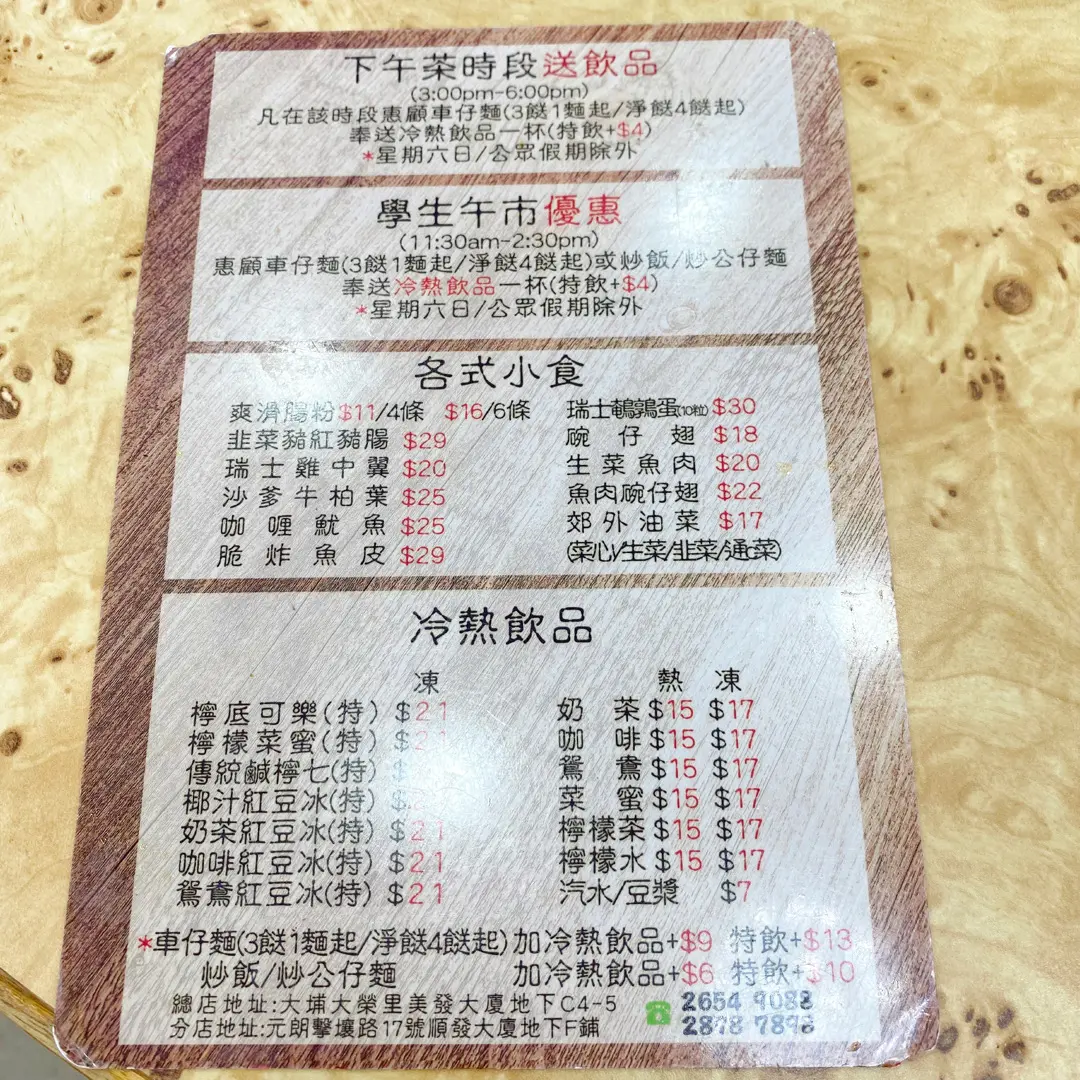 下午茶時段送飲品
(3:00pm-6:00pm)
凡在該時段惠顧車仔麵(3餸1麵起/淨餸4餸起)
奉送冷熱飲品一杯(特飲+$4)
*星期六日/公眾假期除外
學生午市優惠
(11:30am-2:30pm)
惠顧車仔麵(3餸1麵起/淨餸4餸起)或炒飯/炒公仔麵
奉送冷熱飲品一杯(特飲+$4)
*星期六日/公眾假期除外
各式小食
爽滑腸粉$11/4條 $16/6條
韭菜豬紅豬腸 $29
瑞士雞中翼 $20
沙爹牛柏葉 $25
咖喱魷魚 $25
脆炸魚皮 $29
瑞士鵪鶉蛋(10粒) $30
碗仔翅 $18
生菜魚肉 $20
魚肉碗仔翅 $22
郊外油菜 $17
(菜心/生菜/韭菜/通菜)
冷熱飲品
凍
檸底可樂(特) $21
檸檬菜蜜(特) $21
傳統鹹檸七(特) $
椰汁紅豆冰(特) $
奶茶紅豆冰(特) $21
咖啡紅豆冰(特) $21
鴛鴦紅豆冰(特) $21
熱 凍
奶茶 $15 $17
咖啡 $15 $17
鴛鴦 $15 $17
菜蜜 $15 $17
檸檬茶 $15 $17
檸檬水 $15 $17
汽水/豆漿 $7
*車仔麵(3餸1麵起/淨餸4餸起)加冷熱飲品+$9 特飲+$13
炒飯/炒公仔麵 加冷熱飲品+$6 特飲+$10
總店地址:大埔大榮里美發大廈地下C4-5 2654 9088
分店地址:元朗擊壤路17號順發大廈地下F鋪 2878 7898